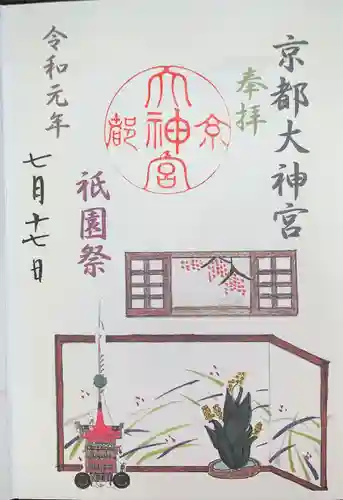 京都大神宮
奉拝
京都
大神宮
祇園祭
令和元年
七月十七日